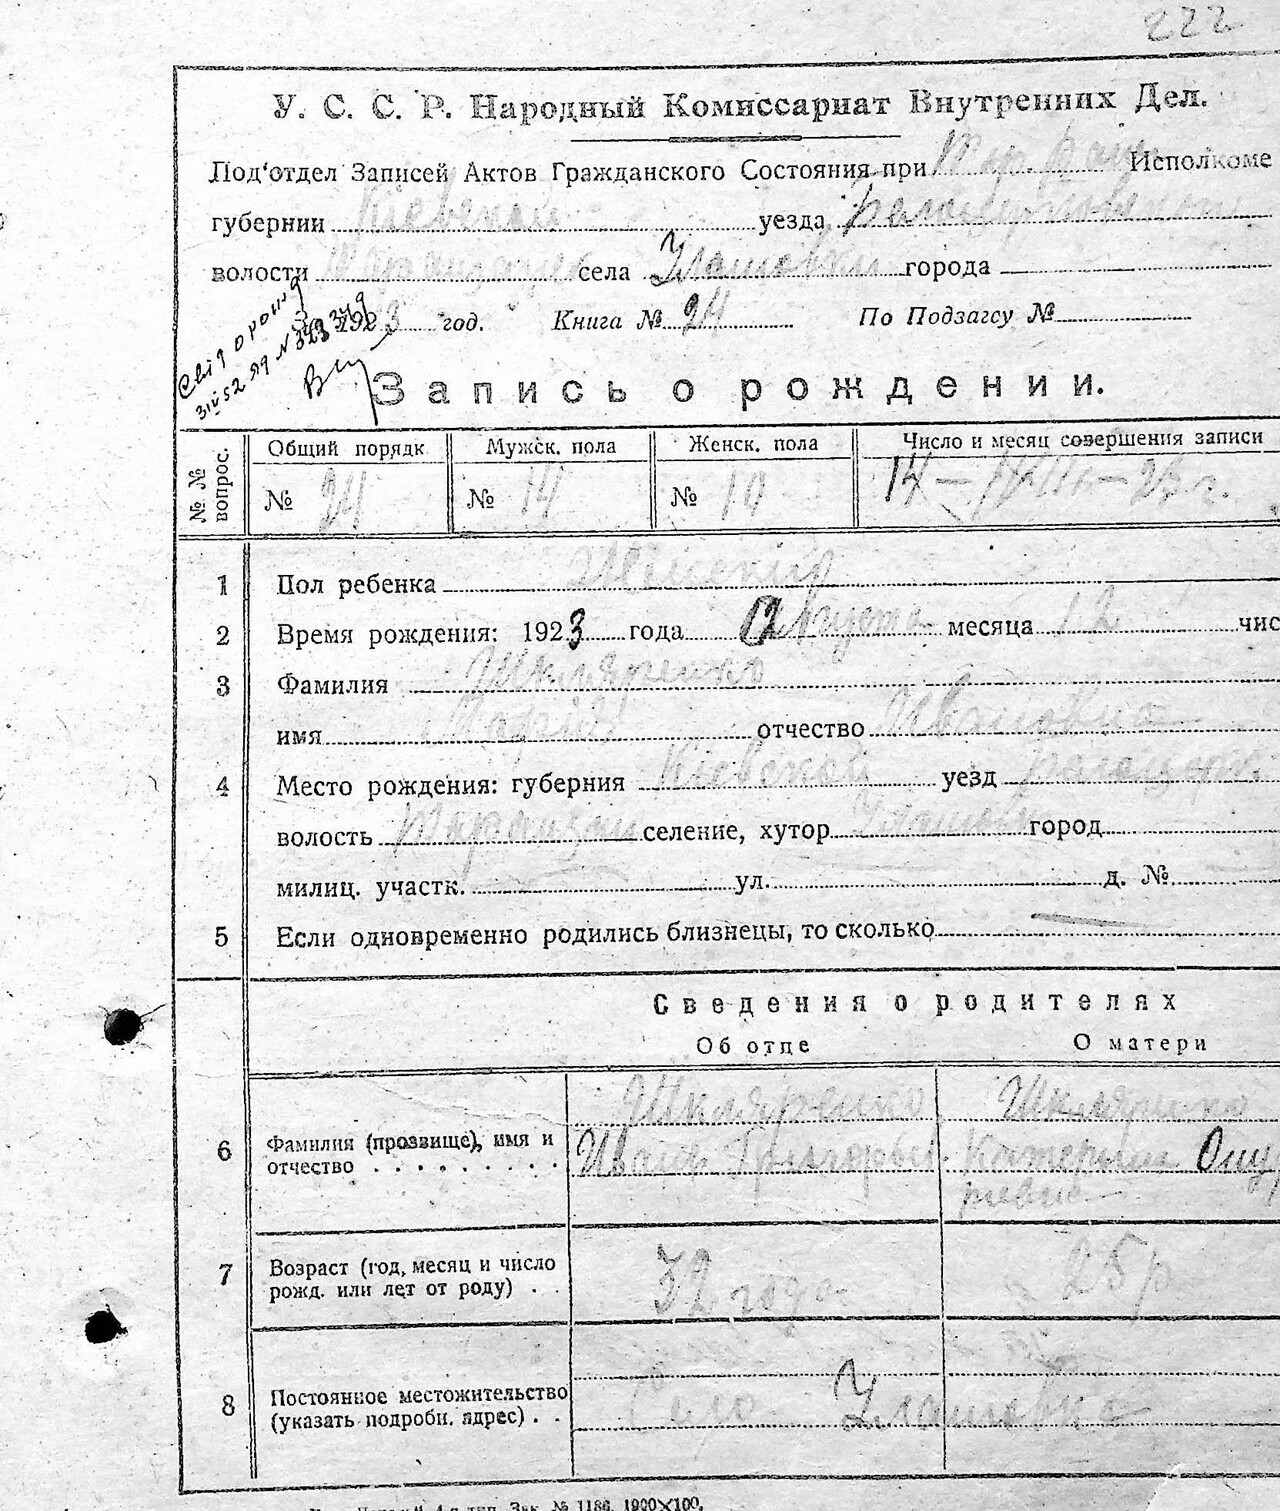 222
У. С. С. Р. Народный Комиссариат Внутренних Дел.
Под'отдел Записей Актов Гражданского Состояния при Тар. Исполкоме
губернии Кіевской уезда Белоцерковской
волости села Улашовки города
1923 год. Книга № 24 По Подзагсу №
Запись о рождении.
№ № вопрос. Общий порядк Мужск. пола Женск. пола Число и месяц совершения записи
№ 24 № 14 № 10 14 – – 23 г.
1 Пол ребенка Женский
2 Время рождения: 1923 года Августа месяца 12 чис
3 Фамилия Шкляренко
имя Марія отчество Ивановна
4 Место рождения: губерния Кіевской уезд Белоцерк.
волость Таращан селение, хутор Улашовка город
милиц. участк. ул. д. №
5 Если одновременно родились близнецы, то сколько
Сведения о родителях
Об отце О матери
6 Фамилия (прозвище), имя и отчество Шкляренко Шкляренко
Иван Григорьев. Катерина Ону
риевна
7 Возраст (год, месяц и число рожд. или лет от роду) 32 года 25 р
8 Постоянное местожительство (указать подробн. адрес) Село Улашовка
4-я тип. Зак. № 1186. 1900×100.